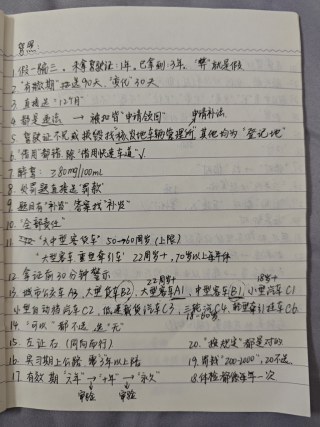 驾照:
1. 假一骗三. 未拿驾驶证:1年. 已拿到:3年. "弊"就是假
2. "有效期"换选90天、"变化"30天
3. 直接选:"12个月"
4. 都是违法 → 被扣留"申请领回" 申请补法
5. 驾驶证不见或损毁找"核发地车辆管理所" 其他均为"登记地"
6. "借用"都错 除"借用快速车道"√.
7. 醉驾: ≥80mg/100ml
8. 处罚题直接选"罚款"
9. 题目有"补贴" 答案找"补贴"
10. "全部责任"
11. "大中型客货车" 50→60周岁(上限)
"大型客车 重型牵引车" 22周岁+, 70岁以上每年体
12. 拿证前30分钟警示
22周岁+ 18岁+
13. 城市公交车A3, 大型货车B2, 大型客车A1, 中型客车B1, 小型汽车C1
小型自动挡汽车C2, 低速载货汽车C3, 三轮汽C4. 轻型牵引挂车C6
18-60岁
14. "可以"都不选 选"无"
15. 左让右(同向而行)
20. "按规定"都是对的
16. 实习期上公路 带3年以上陪
19. 罚钱"200-2000", 20不选.
17. 有效期"六年"→"十年"→"永久"
18. 体检都是每年一次
审验 审验